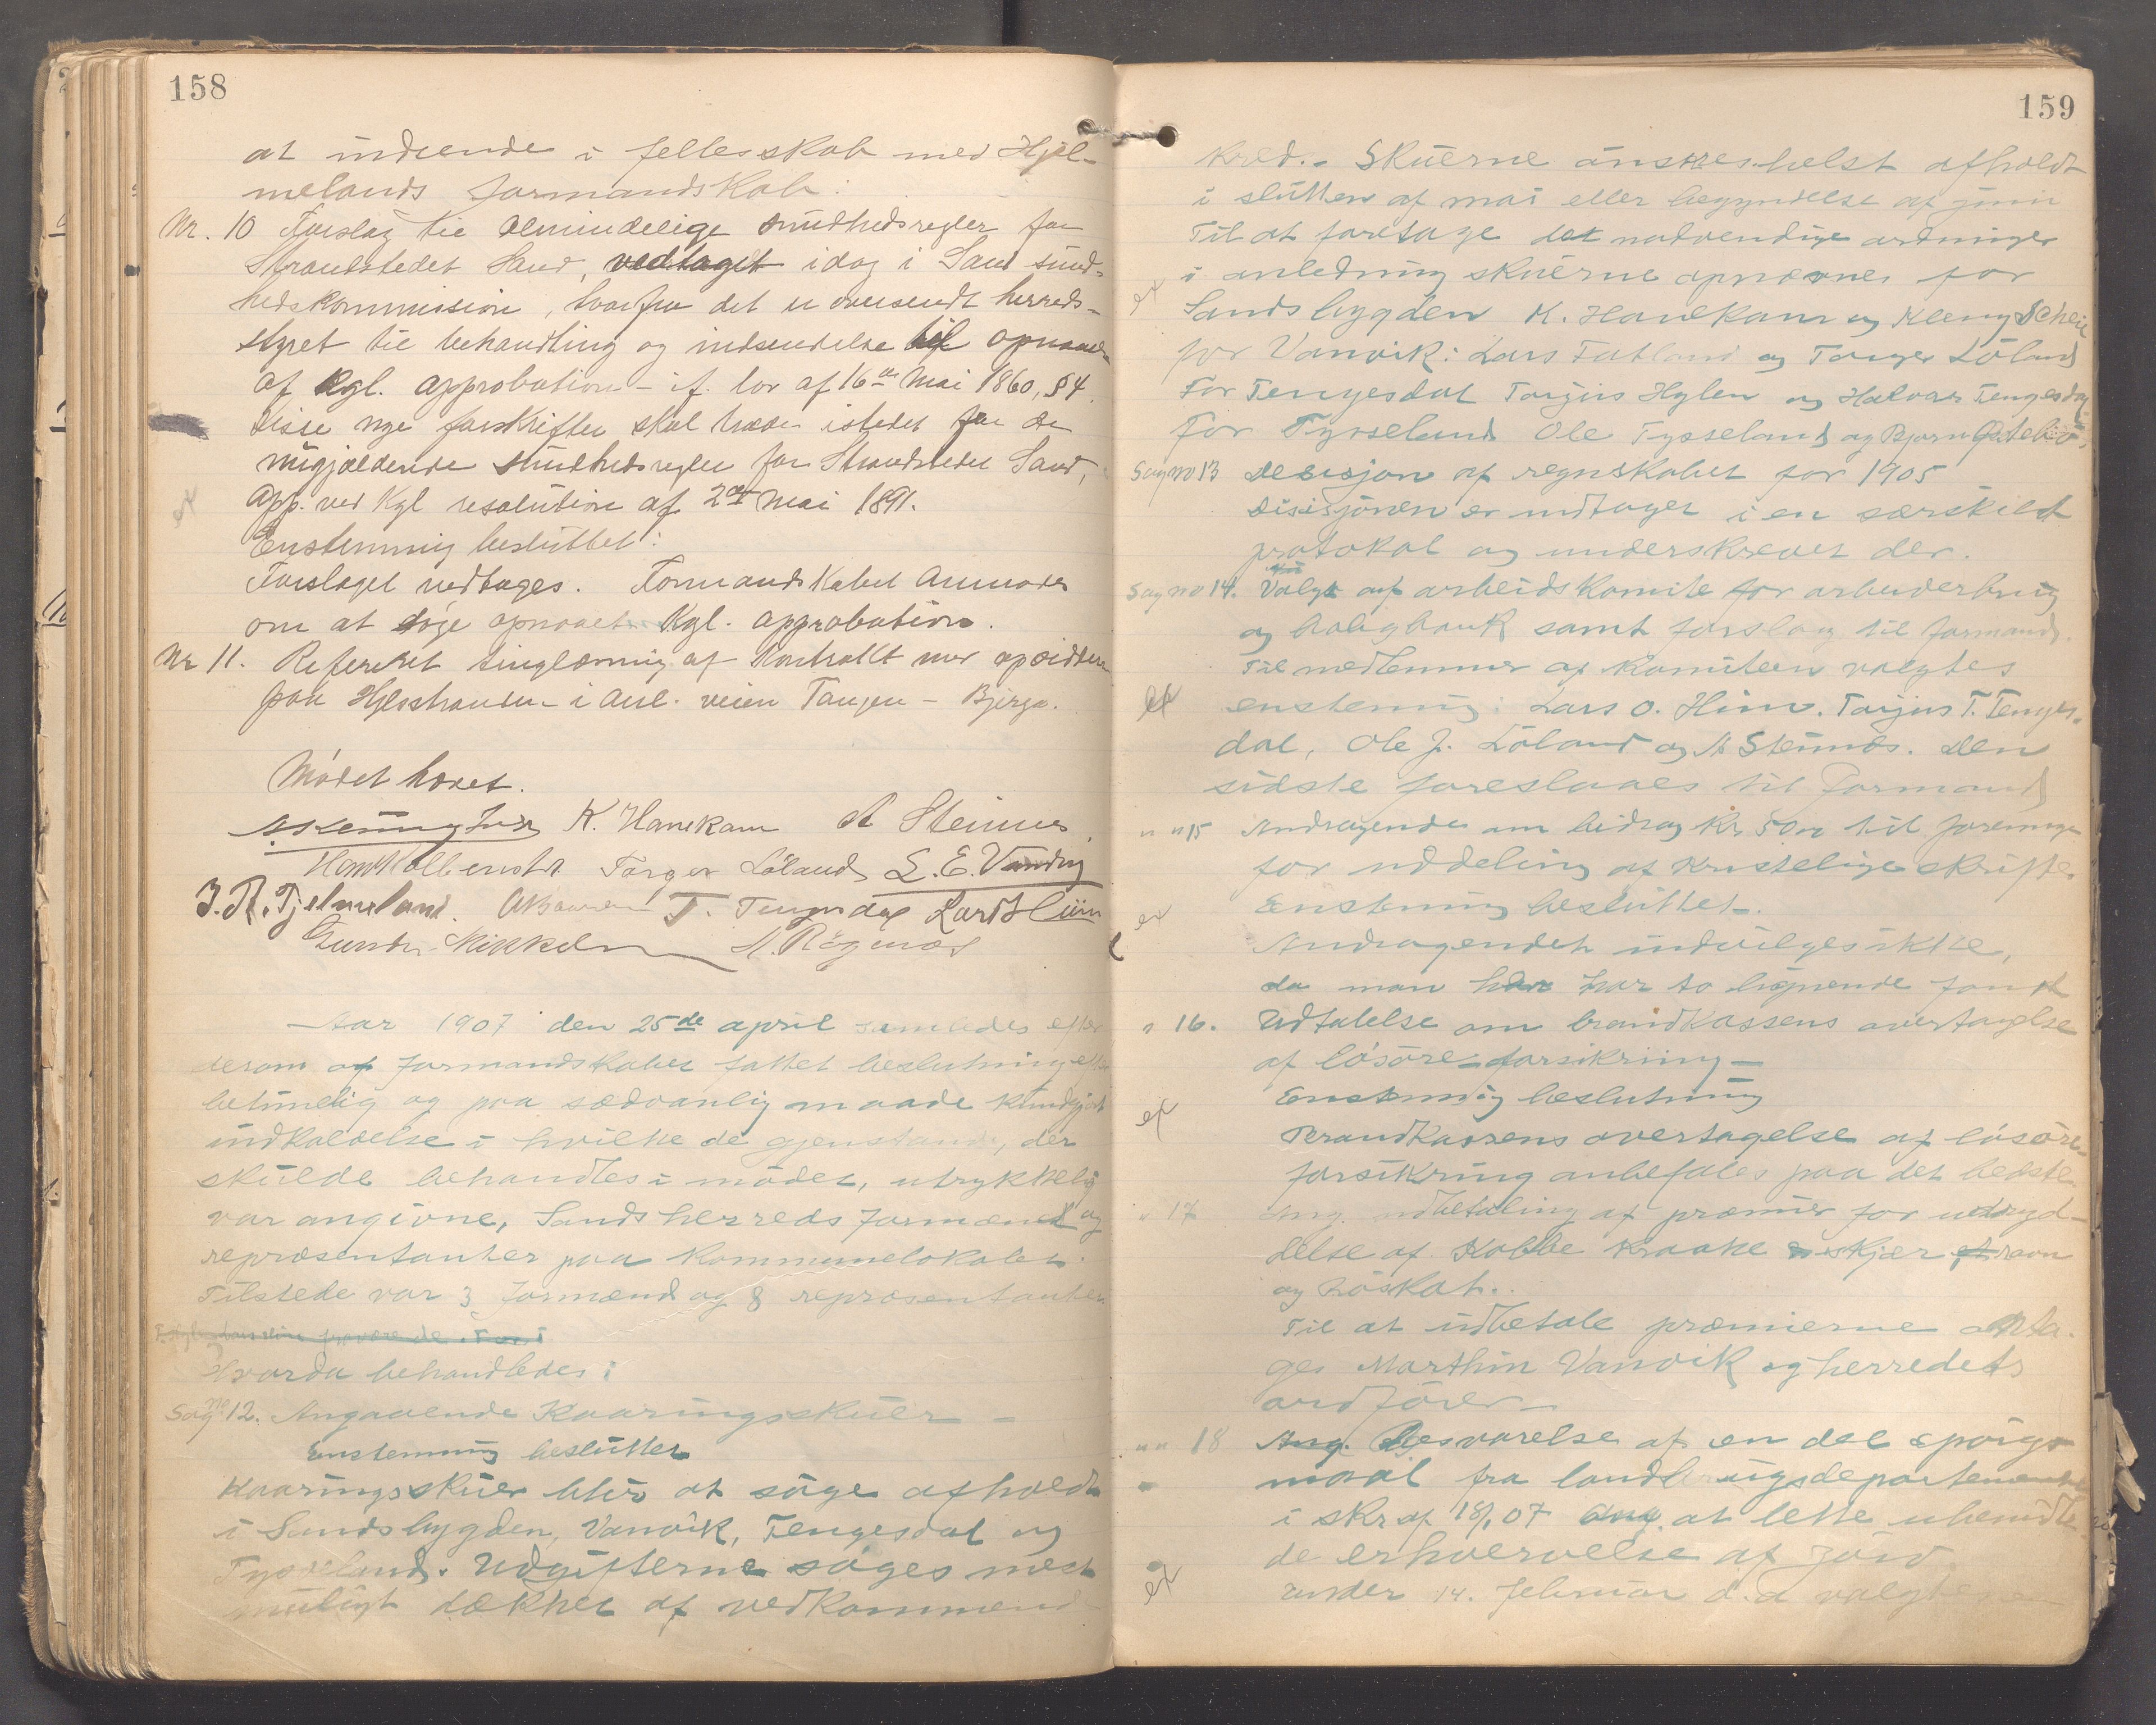 158
at indsende i fellesskab med Hjel-
melands formandskab.
Nr. 10 Forslag til almindelige sundhedsregler for
Strandstedet Sand, vedtaget idag i Sand sund-
hedskommission, hvorfra det er oversendt herreds-
styret til behandling og indsendelse til opnaael-
af kgl. approbation - jf. lov af 16de Mai 1860, §4.
Disse nye forskrifter skal træde istedet for de
nugjældende sundhedsregler for Strandstedet Sand,
app. ved Kgl resolution af 2den Mai 1891.
Enstemmig besluttet:
Forslaget vedtages. Formandskabet anmodes
om at søge opnaaet Kgl. approbation.
Nr 11. Refereret tinglæsning af kontrakt med opsiddere
paa Hjelsstranden i anl. veien Tangen - Bjerga.
Mødet hævet.
K. Hanekam A Steinnes
Torger Löland L. E. Vandvig
J. R. Tjelmeland. T. Tengesdal Lars Hiim
Gunder Mikkelsen A. Røgnæs
Aar 1907 den 25de april samledes efter
derom af formandskabet fattet beslutning efter
betimelig og paa sædvanlig maade kundgjort
indkaldelse i hvilke de gjenstande, der
skulde behandles i mødet, utrykkelig
var angivne, Sands herreds formænd og
repræsentanter paa Kommunelokalet.
Tilstede var 3 formænd og 8 repræsentanter
Hvorda behandledes:
Sag no 12. Angaaende Kaaringsskuer -
Enstemmig besluttet
Kaaringsskuer blir at søge afholdt
i Sandsbygden, Vanvik, Tengesdal og
Tysseland. Udgifterne søges mest
muligt dækket af vedkommende
159
kred. - Skuerne ønskes helst afholdt
i slutten af mai eller begyndelse af juni
Til at foretage det nødvendige ordninger
i anledning skuerne opnævnes for
Sandsbygden K. Hanekam og Kleng Scheie
for Vanvik: Lars Fatland og Torger Löland
For Tengesdal Torjus Hylen og Halvor Tengesdal
For Tysseland Ole Tysseland og Bjørn
Sag no 13 Desisjon af regnskabet for 1905
Disisjonen er indtaget i en særskilt
protokol og underskrevet der.
Sag no 14. Valg af arbeidskomite for arbeiderbrug
og boligbank samt forslag til formand.
Til medlemmer af komiteen valgtes
enstemmig: Lars O. Hiim. Torjus T. Tenges-
dal, Ole J. Löland og A Steinnes. Den
sidste foreslaaes til formand
" " 15 Andragende om bidrag Kr 50oo til foreninge
for uddeling af kristelige skrifter
Enstemmig besluttet.
Andragendet indvilges ikke,
da man her har to lignende fond
" 16. Udtalelse om brandkassens overtagelse
af løsøre-forsikring -
Enstemmig beslutning
Brandkassens overtagelse af løsøre-
forsikring anbefales paa det bedste
" 17 Ang. udbetaling af præmier for udryd-
delse af Kobbe kraake skjær ravn
og
Til at udbetale præmierne anta-
ges Marthin Vanvik og herredets
ordfører -
" " 18 Ang. Besvarelse af en del spørgs-
maal fra landbrugsdepartementet
i skr af 18/1 07 ang. at lette ubemidle-
de erhvervelse af jord
under 14. februar d.a valgtes